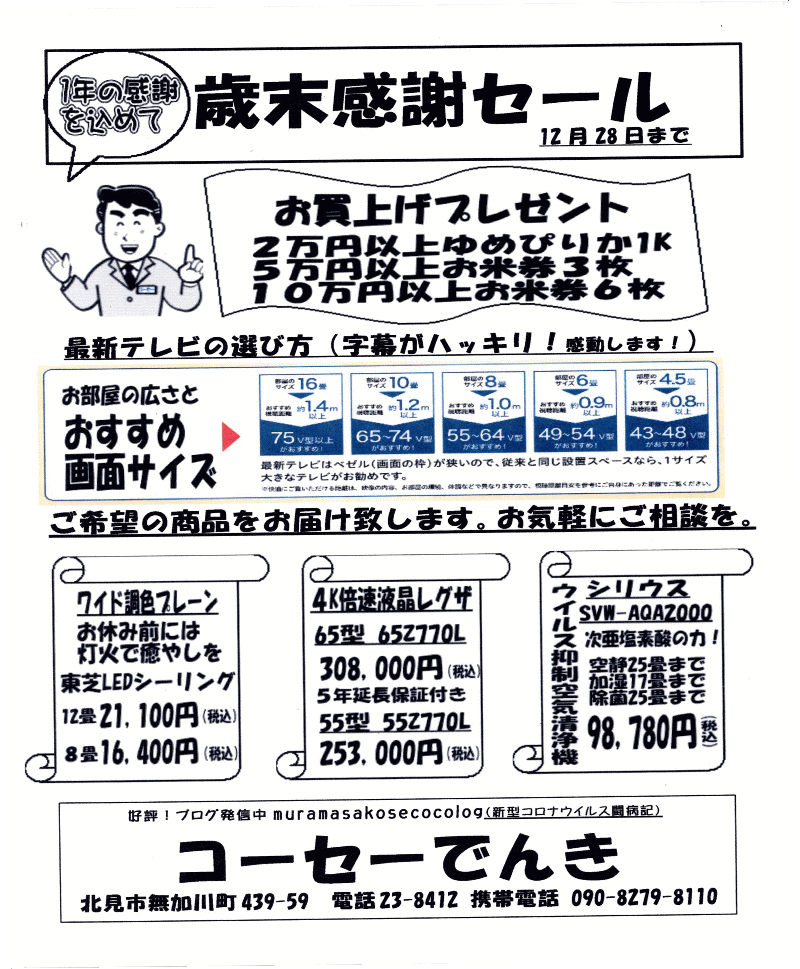 1年の感謝
を込めて
歳末感謝セール
12月28日まで
お買上げプレゼント
2万円以上ゆめぴりか1K
5万円以上お米券3枚
10万円以上お米券6枚
最新テレビの選び方（字幕がハッキリ！感動します！）
お部屋の広さと
おすすめ
画面サイズ
部屋のサイズ 16畳
おすすめ視聴距離 約1.4m以上
75V型以上
がおすすめ！
部屋のサイズ 10畳
おすすめ視聴距離 約1.2m以上
65~74V型
がおすすめ！
部屋のサイズ 8畳
おすすめ視聴距離 約1.0m以上
55~64V型
がおすすめ！
部屋のサイズ 6畳
おすすめ視聴距離 約0.9m以上
49~54V型
がおすすめ！
部屋のサイズ 4.5畳
おすすめ視聴距離 約0.8m以上
43~48V型
がおすすめ！
最新テレビはベゼル(画面の枠)が狭いので、従来と同じ設置スペースなら、1サイズ
大きなテレビがお勧めです。
※快適にご覧いただける距離は、映像の内容、お部屋の環境、体調などで異なりますので、視聴距離目安を参考にご自身にあった距離でご覧ください。
ご希望の商品をお届け致します。お気軽にご相談を。
ワイド調色プレーン
お休み前には
灯火で癒やしを
東芝LEDシーリング
12畳21,100円(税込)
8畳16,400円(税込)
4K倍速液晶レグザ
65型 65Z770L
308,000円(税込)
5年延長保証付き
55型 55Z770L
253,000円(税込)
ウイルス抑制空気清浄機
シリウス
SVW-AQA2000
次亜塩素酸の力！
空静25畳まで
加湿17畳まで
除菌25畳まで
98,780円(税込)
好評！ブログ発信中muramasakosecocolog(新型コロナウイルス闘病記)
コーセーでんき
北見市無加川町439-59 電話23-8412 携帯電話 090-8279-8110